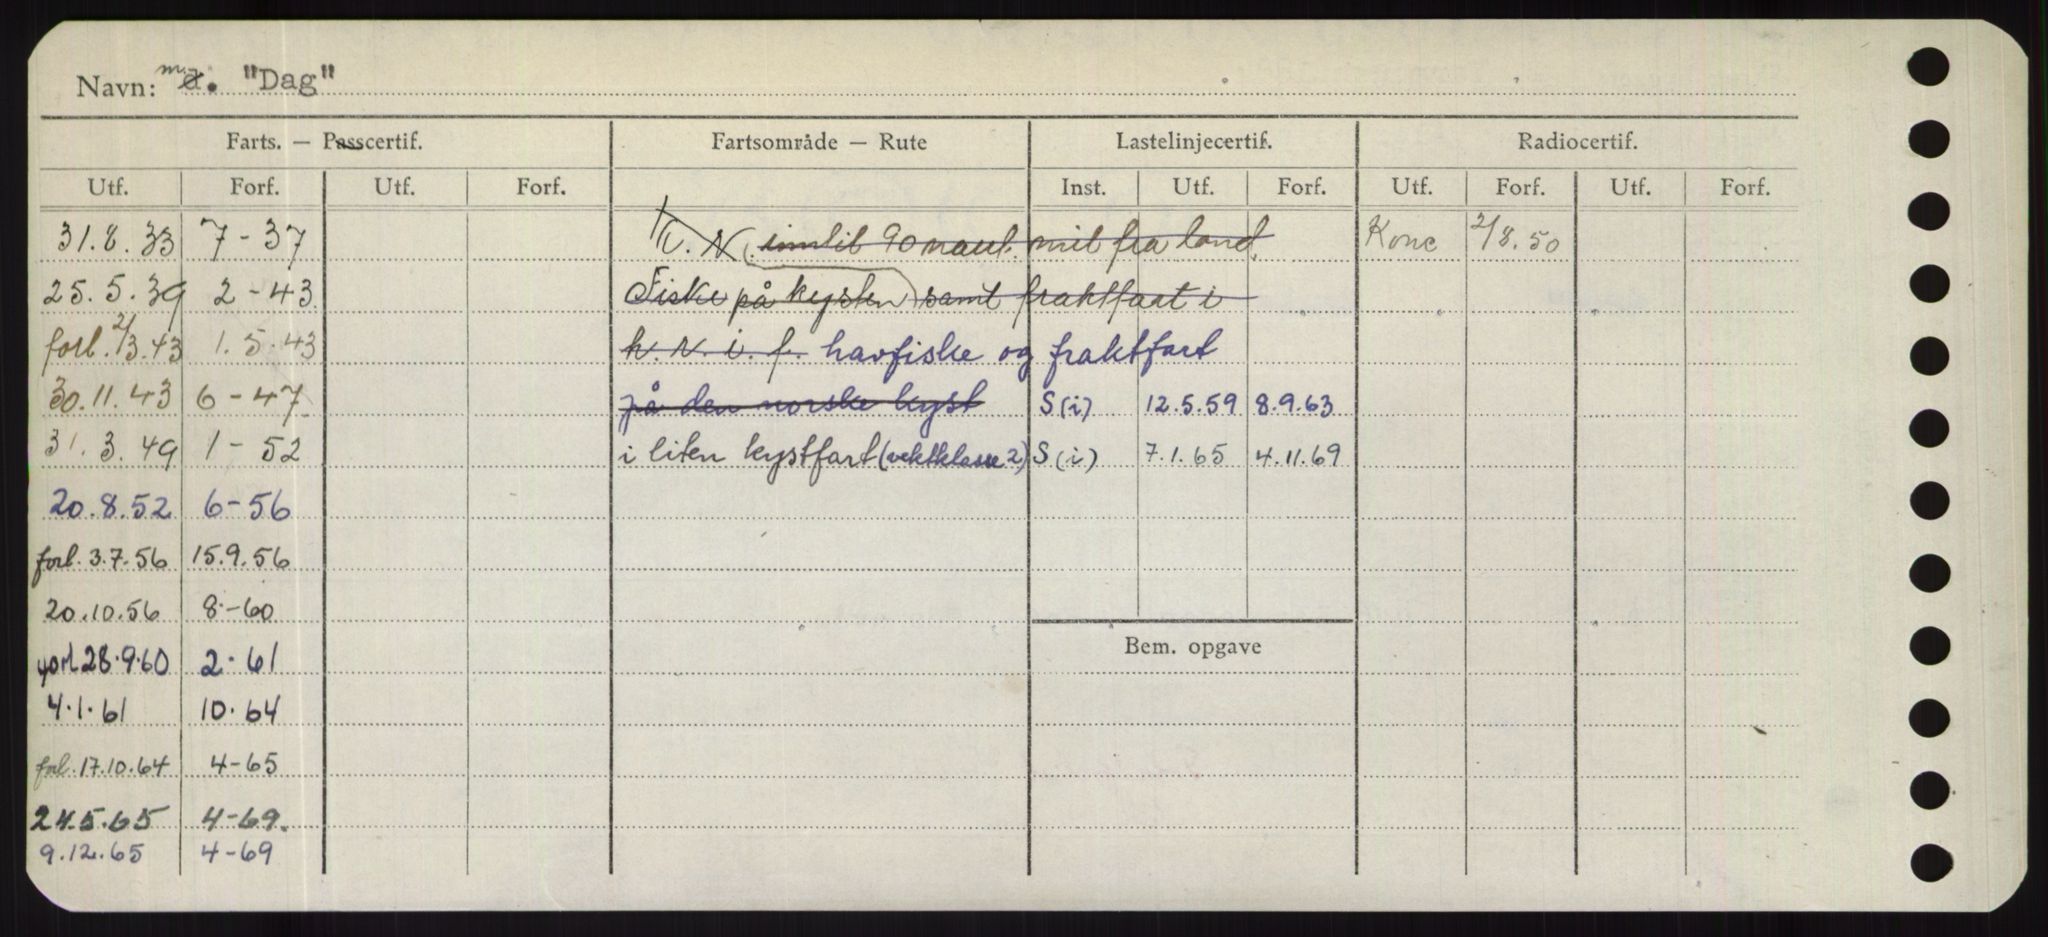 Navn: m. "Dag"
Farts. — Passcertif. Fartsområde — Rute Lastelinjecertif. Radiocertif.
Utf. Forf. Utf. Forf. Inst. Utf. Forf. Utf. Forf. Utf. Forf.
31.8.33 7-37 N. inntil 90 naut. mil fra land. Konc 2/8.50
25.5.39 2-43. Fiske på kysten samt fraktfart i
forl. 2/3.43 1.5.43 h.N.i.f. havfiske og fraktfart
30.11.43 6-47. på den norske kyst S(i) 12.5.59 8.9.63
31.3.49 1-52 i liten kystfart (vektklasse 2) S(i) 7.1.65 4.11.69
20.8.52 6-56
forl. 3.7.56 15.9.56
20.10.56 8-60
forl 28.9.60 2.61
Bem. opgave
4.1.61 10.64
forl. 17.10.64 4-65
24.5.65 4-69.
9.12.65 4-69